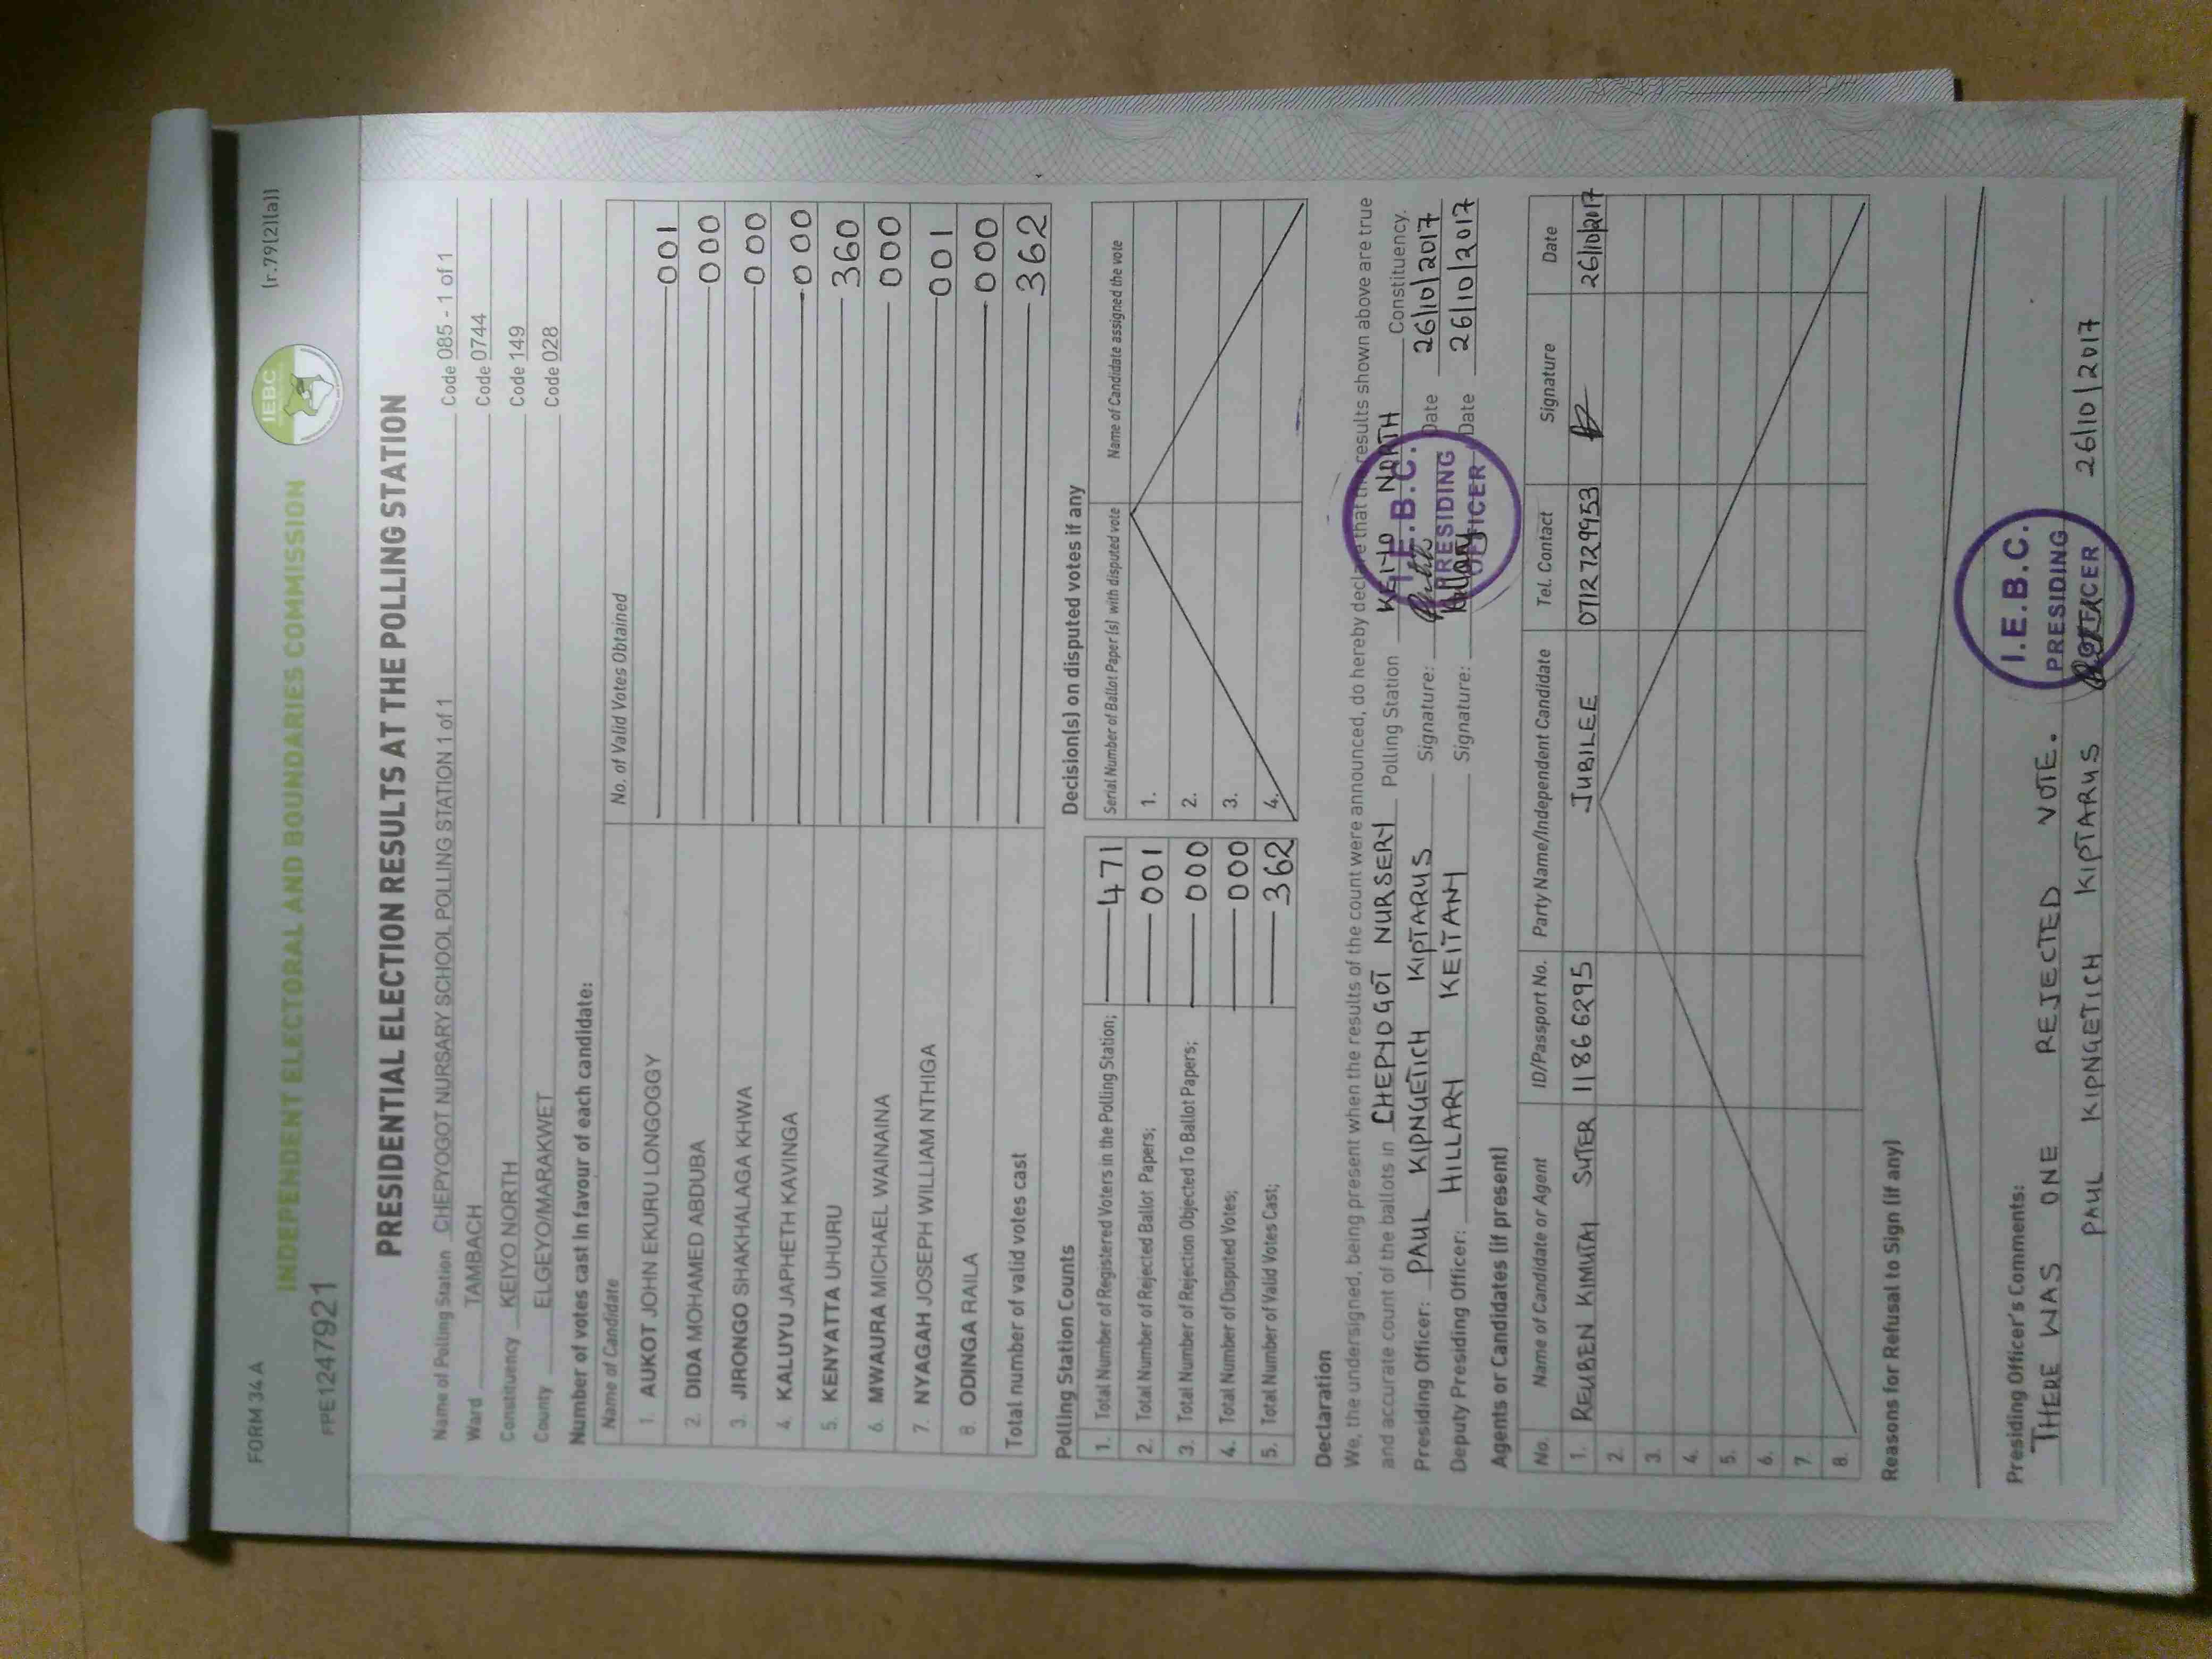 FORM 34 A
(r.79(2)(a))
INDEPENDENT ELECTORAL AND BOUNDARIES COMMISSION
IEBC
FPE1247921
PRESIDENTIAL ELECTION RESULTS AT THE POLLING STATION
Name of Polling Station CHEPYOGOT NURSARY SCHOOL POLLING STATION 1 of 1 Code 085 - 1 of 1
Ward TAMBACH Code 0744
Constituency KEIYO NORTH Code 149
County ELGEYO/MARAKWET Code 028
Number of votes cast in favour of each candidate:
Name of Candidate No. of Valid Votes Obtained
1. AUKOT JOHN EKURU LONGOGGY 001
2. DIDA MOHAMED ABDUBA 000
3. JIRONGO SHAKHALAGA KHWA 000
4. KALUYU JAPHETH KAVINGA 000
5. KENYATTA UHURU 360
6. MWAURA MICHAEL WAINAINA 000
7. NYAGAH JOSEPH WILLIAM NTHIGA 001
8. ODINGA RAILA 000
Total number of valid votes cast 362
Polling Station Counts
1. Total Number of Registered Voters in the Polling Station; 471
2. Total Number of Rejected Ballot Papers; 001
3. Total Number of Rejection Objected To Ballot Papers; 000
4. Total Number of Disputed Votes; 000
5. Total Number of Valid Votes Cast; 362
Decision(s) on disputed votes if any
Serial Number of Ballot Paper (s) with disputed vote Name of Candidate assigned the vote
1.
2.
3.
4.
Declaration
We, the undersigned, being present when the results of the count were announced, do hereby declare that the results shown above are true
and accurate count of the ballots in CHEPYOGOT NURSERY Polling Station KEIYO NORTH Constituency.
Presiding Officer: PAUL KIPNGETICH KIPTARUS Signature: Date 26/10/2017
Deputy Presiding Officer: HILLARY KEITANY Signature: Date 26/10/2017
I.E.B.C.
PRESIDING
OFFICER
Agents or Candidates (if present)
No. Name of Candidate or Agent ID/Passport No. Party Name/Independent Candidate Tel. Contact Signature Date
1. REUBEN KIMUTAI SUTER 11866295 JUBILEE 0712729953 26/10/2017
2.
3.
4.
5.
6.
7.
8.
Reasons for Refusal to Sign (if any)
Presiding Officer's Comments:
THERE WAS ONE REJECTED VOTE.
PAUL KIPNGETICH KIPTARUS 26/10/2017
I.E.B.C.
PRESIDING
OFFICER